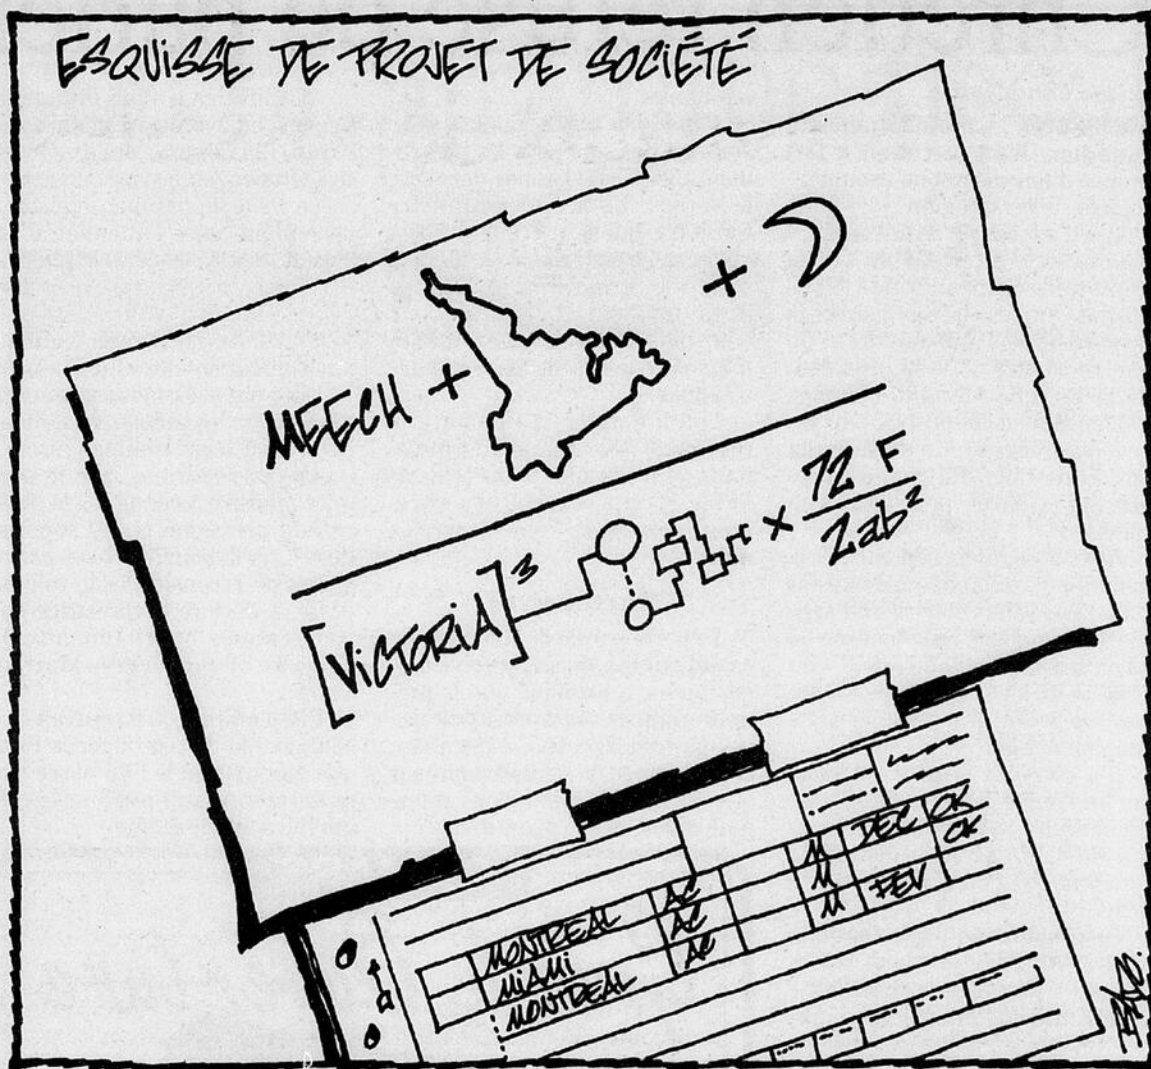 ESQUISSE DE PROJET DE SOCIÉTÉ
MEECH + +
[VICTORIA]³ × 72 F / 2ab²
M DEC OK
MONTREAL AC M OK
MIAMI AC M FEV
MONTREAL AC